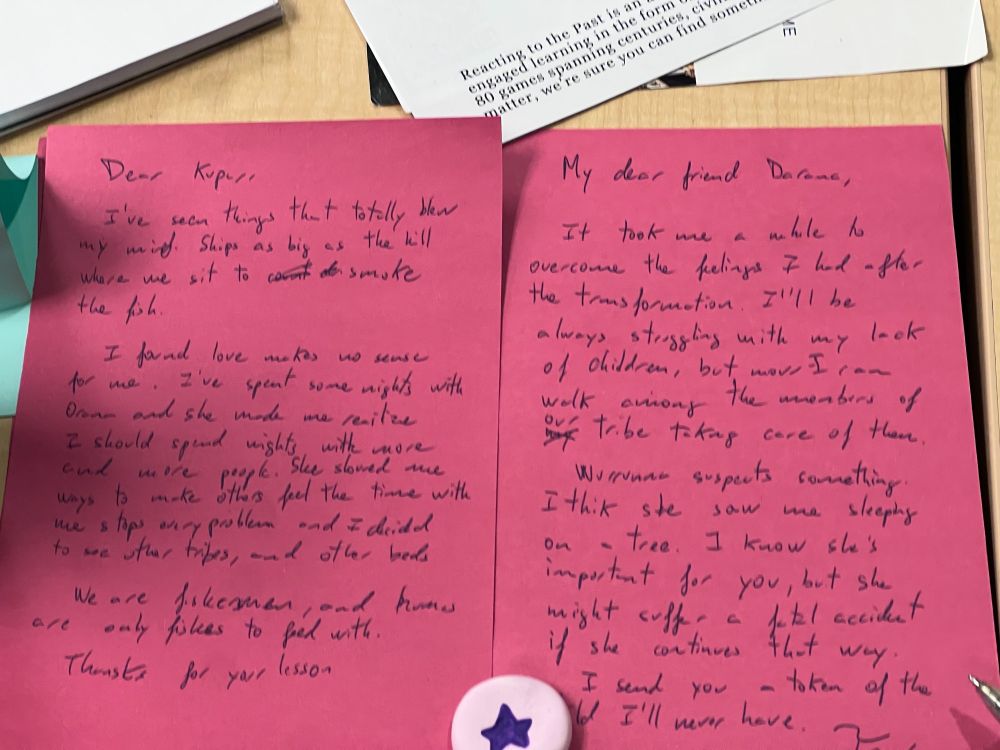 Reacting to the Past is an
engaged learning in the form o
80 games spanning centuries, civili
matter, we're sure you can find someth
ME
Dear
I've seen things that totally blew
my mind. Ships as big as the hill
where we sit to smoke
the fish.
I found love makes no sense
for me. I've spent some nights with
Orana and she made me realize
I should spend nights with more
and more people. She showed me
ways to make others feel the time with
me stops every problem and I decided
to see other tribes, and other beds
We are fishermen, and
are only fishes to feed with.
Thanks for your lesson
My dear friend Darana,
It took me a while to
overcome the feelings I had after
the transformation. I'll be
always struggling with my lack
of children, but now I can
walk among the members of
our tribe taking care of them.
Wurrunna suspects something.
I thik she saw me sleeping
on a tree. I know she's
important for you, but she
might suffer a fatal accident
if she continues that way.
I send you a token of the
ld I'll never have.